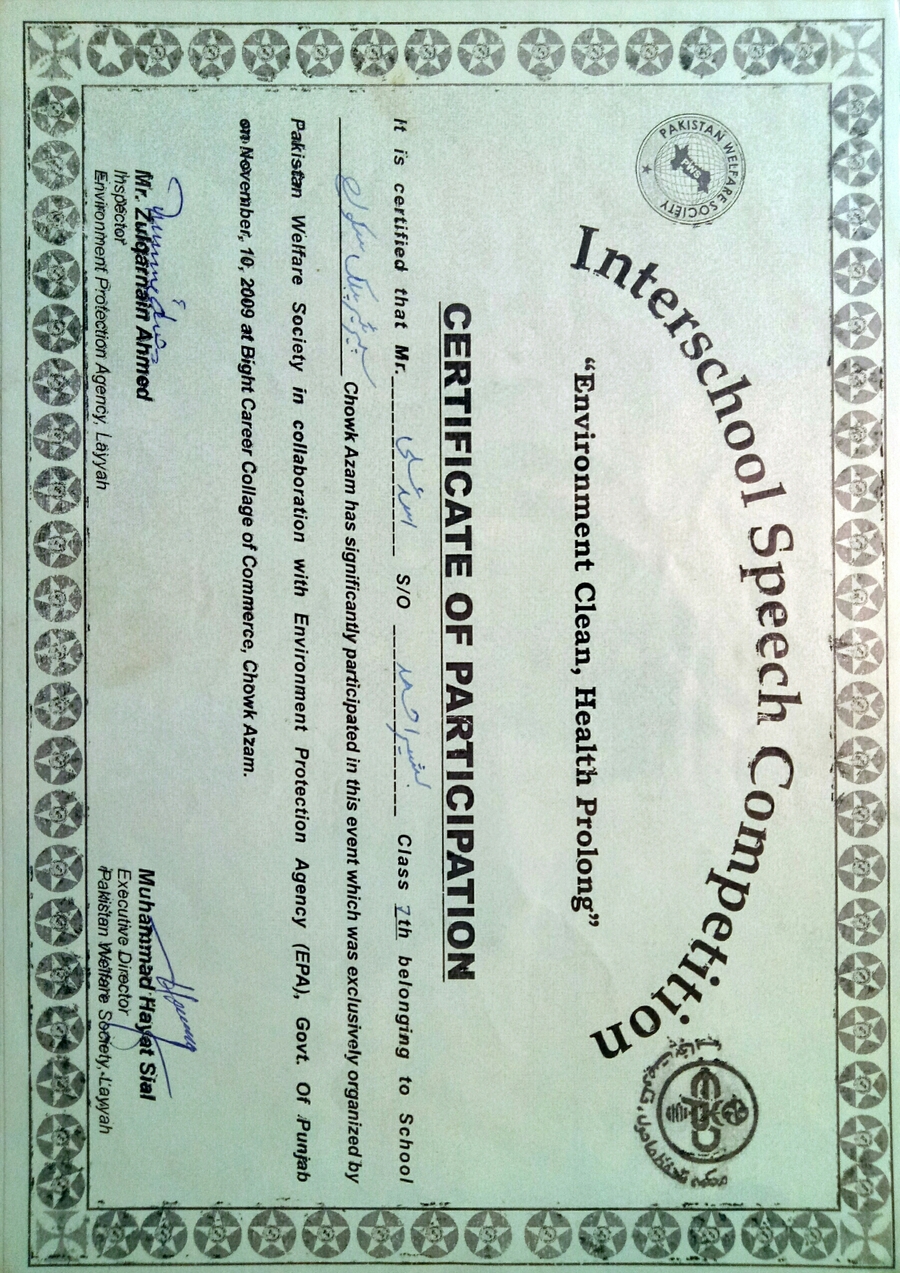 Interschool Speech Competition
PAKISTAN WELFARE SOCIETY
PWS
EPD
محکمہ تحفظ ماحول، حکومت پنجاب
“Environment Clean, Health Prolong”
CERTIFICATE OF PARTICIPATION
It is certified that Mr. اسد علی S/O بشیر احمد Class 7th belonging to School
پبلک سکول Chowk Azam has significantly participated in this event which was exclusively organized by
Pakistan Welfare Society in collaboration with Environment Protection Agency (EPA), Govt. Of Punjab
on November, 10, 2009 at Bight Career Collage of Commerce, Chowk Azam.
Mr. Zulqarnain Ahmed
Inspector
Environment Protection Agency, Layyah
Muhammad Hayat Sial
Executive Director
Pakistan Welfare Society, Layyah